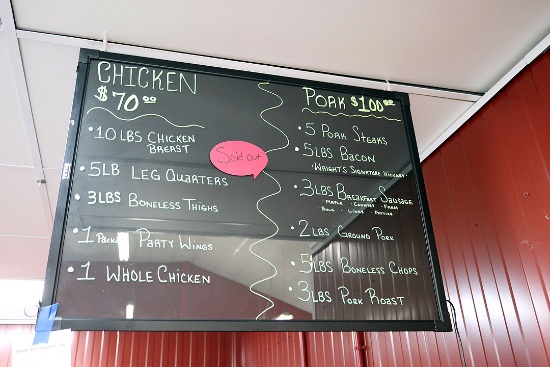 CHICKEN
$70.00
• 10 LBS CHICKEN
BREAST
• 5LB LEG QUARTERS
• 3LBS BONELESS THIGHS
• 1 PACK PARTY WINGS
• 1 WHOLE CHICKEN
Sold out
PORK $100.00
• 5 PORK STEAKS
• 5LBS BACON
• WRIGHT'S SIGNATURE HICKORY
• 3LBS BREAKFAST SAUSAGE
MAPLE - COUNTRY - FARM
BULK - LINKS - PATTIES
• 2LBS GROUND PORK
• 5LBS BONELESS CHOPS
• 3LBS PORK ROAST